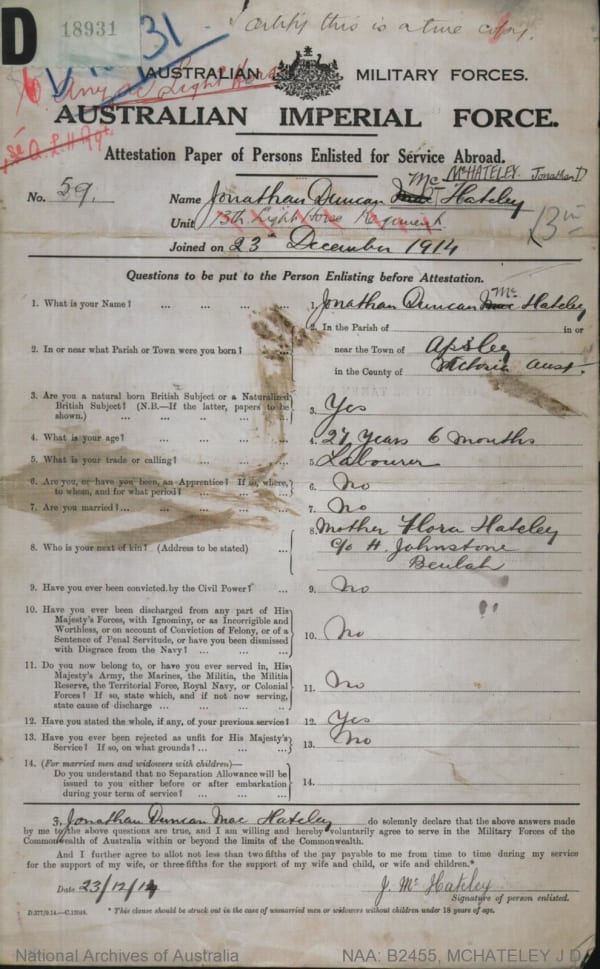 D
18931
I certify this is a true copy.
AUSTRALIAN MILITARY FORCES.
AUSTRALIAN IMPERIAL FORCE.
Attestation Paper of Persons Enlisted for Service Abroad.
McHATELEY. Jonathan D
No. 59. Name Jonathan Duncan Mc Hateley
Unit 13th Light Horse Regiment
Joined on 23rd December 1914
Questions to be put to the Person Enlisting before Attestation.
1. What is your Name? ... ... ... ... 1. Jonathan Duncan Mc Hateley
2. In or near what Parish or Town were you born? ... ... 2. In the Parish of in or
near the Town of Apsley
in the County of Victoria Aust.
3. Are you a natural born British Subject or a Naturalized
British Subject? (N.B.—If the latter, papers to be
shown.) ... ... ... ... 3. Yes
4. What is your age? ... ... ... ... 4. 27 years 6 months
5. What is your trade or calling? ... ... ... 5. Labourer
6. Are you, or have you been, an Apprentice? If so, where,
to whom, and for what period? ... ... ... 6. No
7. Are you married? ... ... ... ... 7. No
8. Who is your next of kin? (Address to be stated) ... 8. Mother Flora Hateley
c/o H. Johnstone
Beulah
9. Have you ever been convicted by the Civil Power? ... 9. No
10. Have you ever been discharged from any part of His
Majesty's Forces, with Ignominy, or as Incorrigible and
Worthless, or on account of Conviction of Felony, or of a
Sentence of Penal Servitude, or have you been dismissed
with Disgrace from the Navy? ... ... ... 10. No
11. Do you now belong to, or have you ever served in, His
Majesty's Army, the Marines, the Militia, the Militia
Reserve, the Territorial Force, Royal Navy, or Colonial
Forces? If so, state which, and if not now serving,
state cause of discharge ... ... ... ... 11. No
12. Have you stated the whole, if any, of your previous service? 12. Yes
13. Have you ever been rejected as unfit for His Majesty's
Service? If so, on what grounds? ... ... ... 13. No
14. (For married men and widowers with children)—
Do you understand that no Separation Allowance will be
issued to you either before or after embarkation
during your term of service? ... ... ... 14.
I, Jonathan Duncan Mac Hateley do solemnly declare that the above answers made
by me to the above questions are true, and I am willing and hereby voluntarily agree to serve in the Military Forces of the
Commonwealth of Australia within or beyond the limits of the Commonwealth.
And I further agree to allot not less than two-fifths of the pay payable to me from time to time during my service
for the support of my wife, or three-fifths for the support of my wife and child, or wife and children.*
Date 23/12/14 J. Mc Hateley
Signature of person enlisted.
D.377/9.14.—C.12048. * This clause should be struck out in the case of unmarried men or widowers without children under 18 years of age.
National Archives of Australia NAA: B2455, MCHATELEY J D